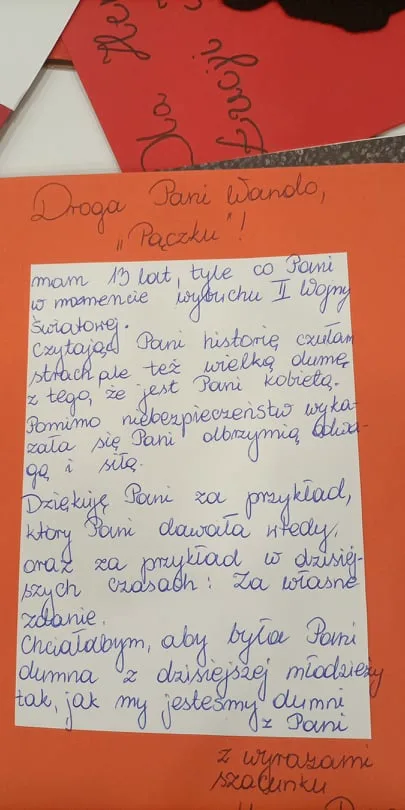 Dla
Droga Pani Wando,
„Pączku"!
mam 13 lat, tyle co Pani
w momencie wybuchu II Wojny
Światowej.
Czytając Pani historię czułam
strach, ale też wielką dumę
z tego, że jest Pani kobietą.
Pomimo niebezpieczeństw wyka-
zała się Pani olbrzymią odwa-
gą i siłą.
Dziękuję Pani za przykład,
który Pani dawała wtedy,
oraz za przykład w dzisiej-
szych czasach: Za własne
zdanie.
Chciałabym, aby była Pani
dumna z dzisiejszej młodzieży
tak, jak my jesteśmy dumni
z Pani
z wyrazami
szacunku